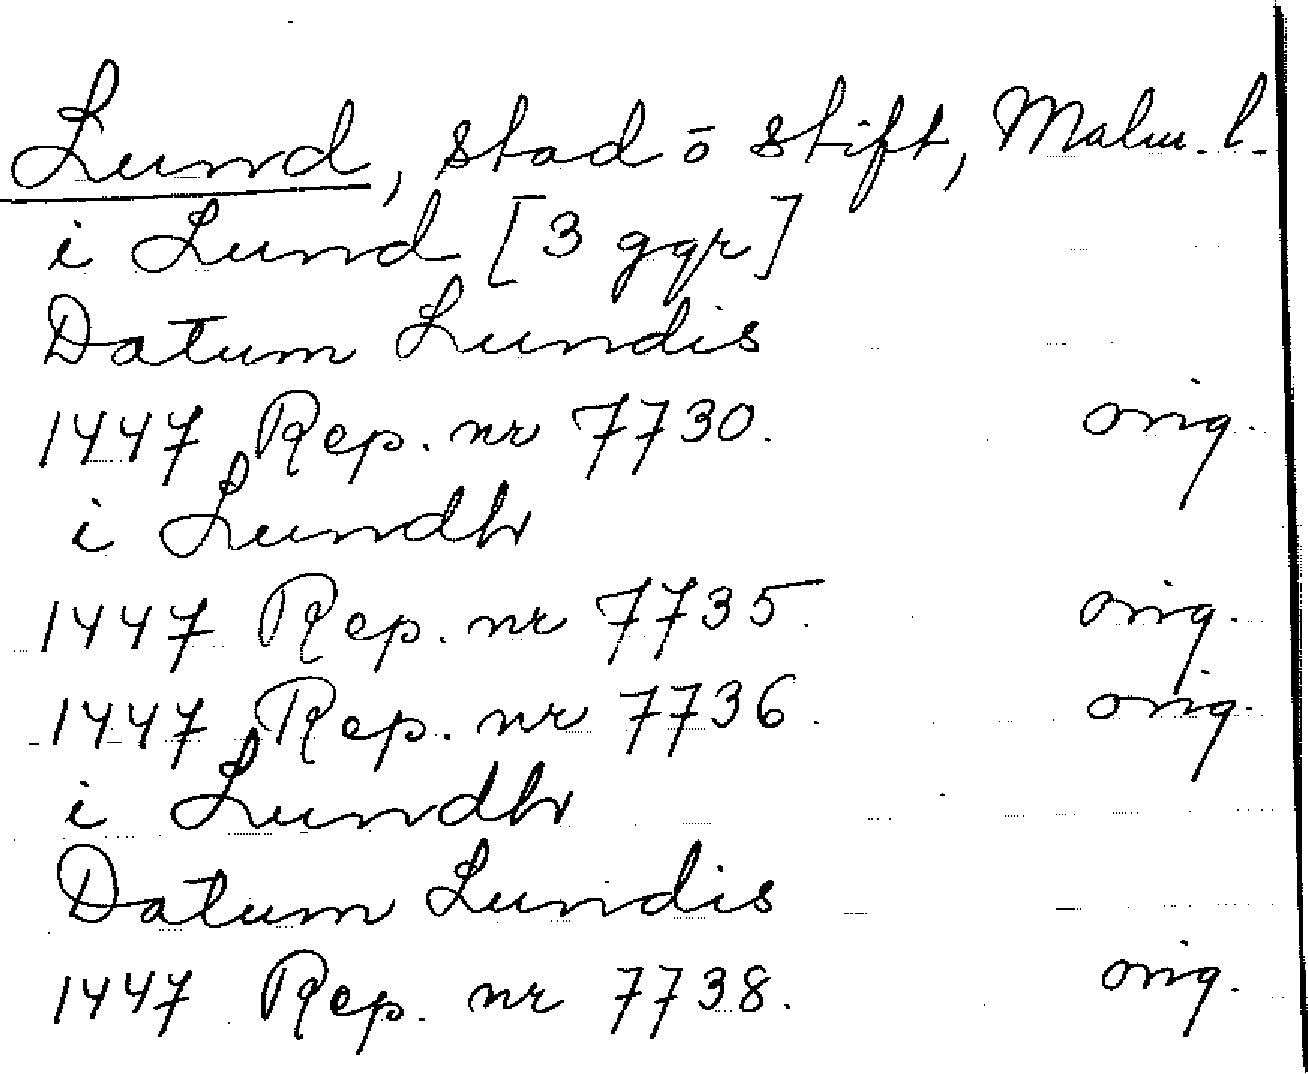 Lund, stad o stift, Malm. l.
i Lund [3 ggr]
Datum Lundis
1447 Rep. nr 7730. orig.
i Lundh
1447 Rep. nr 7735. orig.
1447 Rep. nr 7736. orig.
i Lundh
Datum Lundis
1447 Rep. nr 7738. orig.